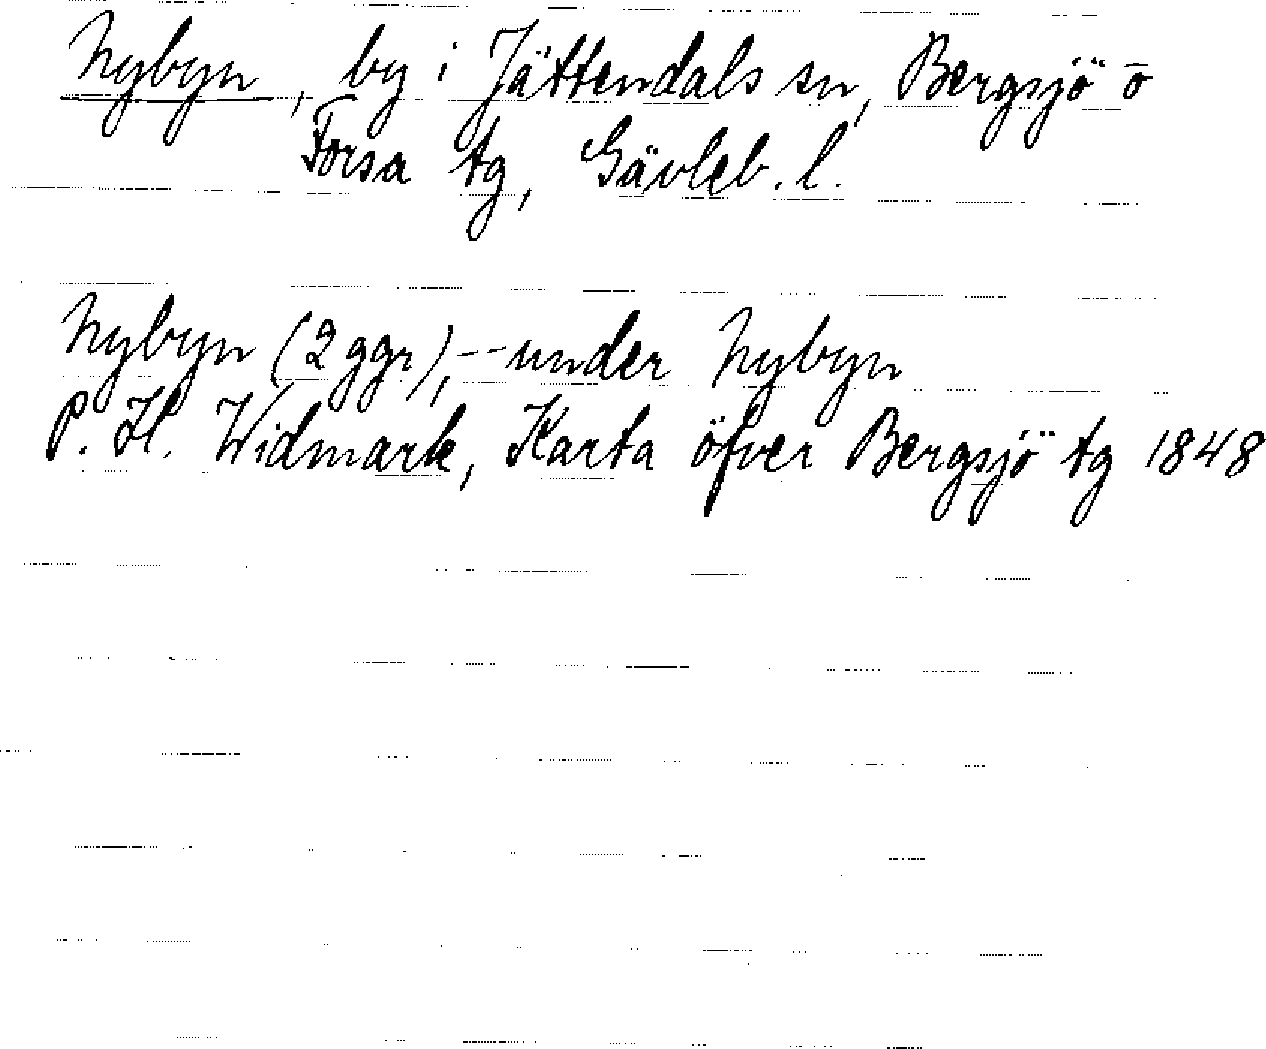 Nybyn, by i Jättendals sn, Bergsjö o
Forsa tg, Gävleb. l.
Nybyn (2 ggr), -- under Nybyn
P. H. Widmark, Karta öfver Bergsjö tg 1848